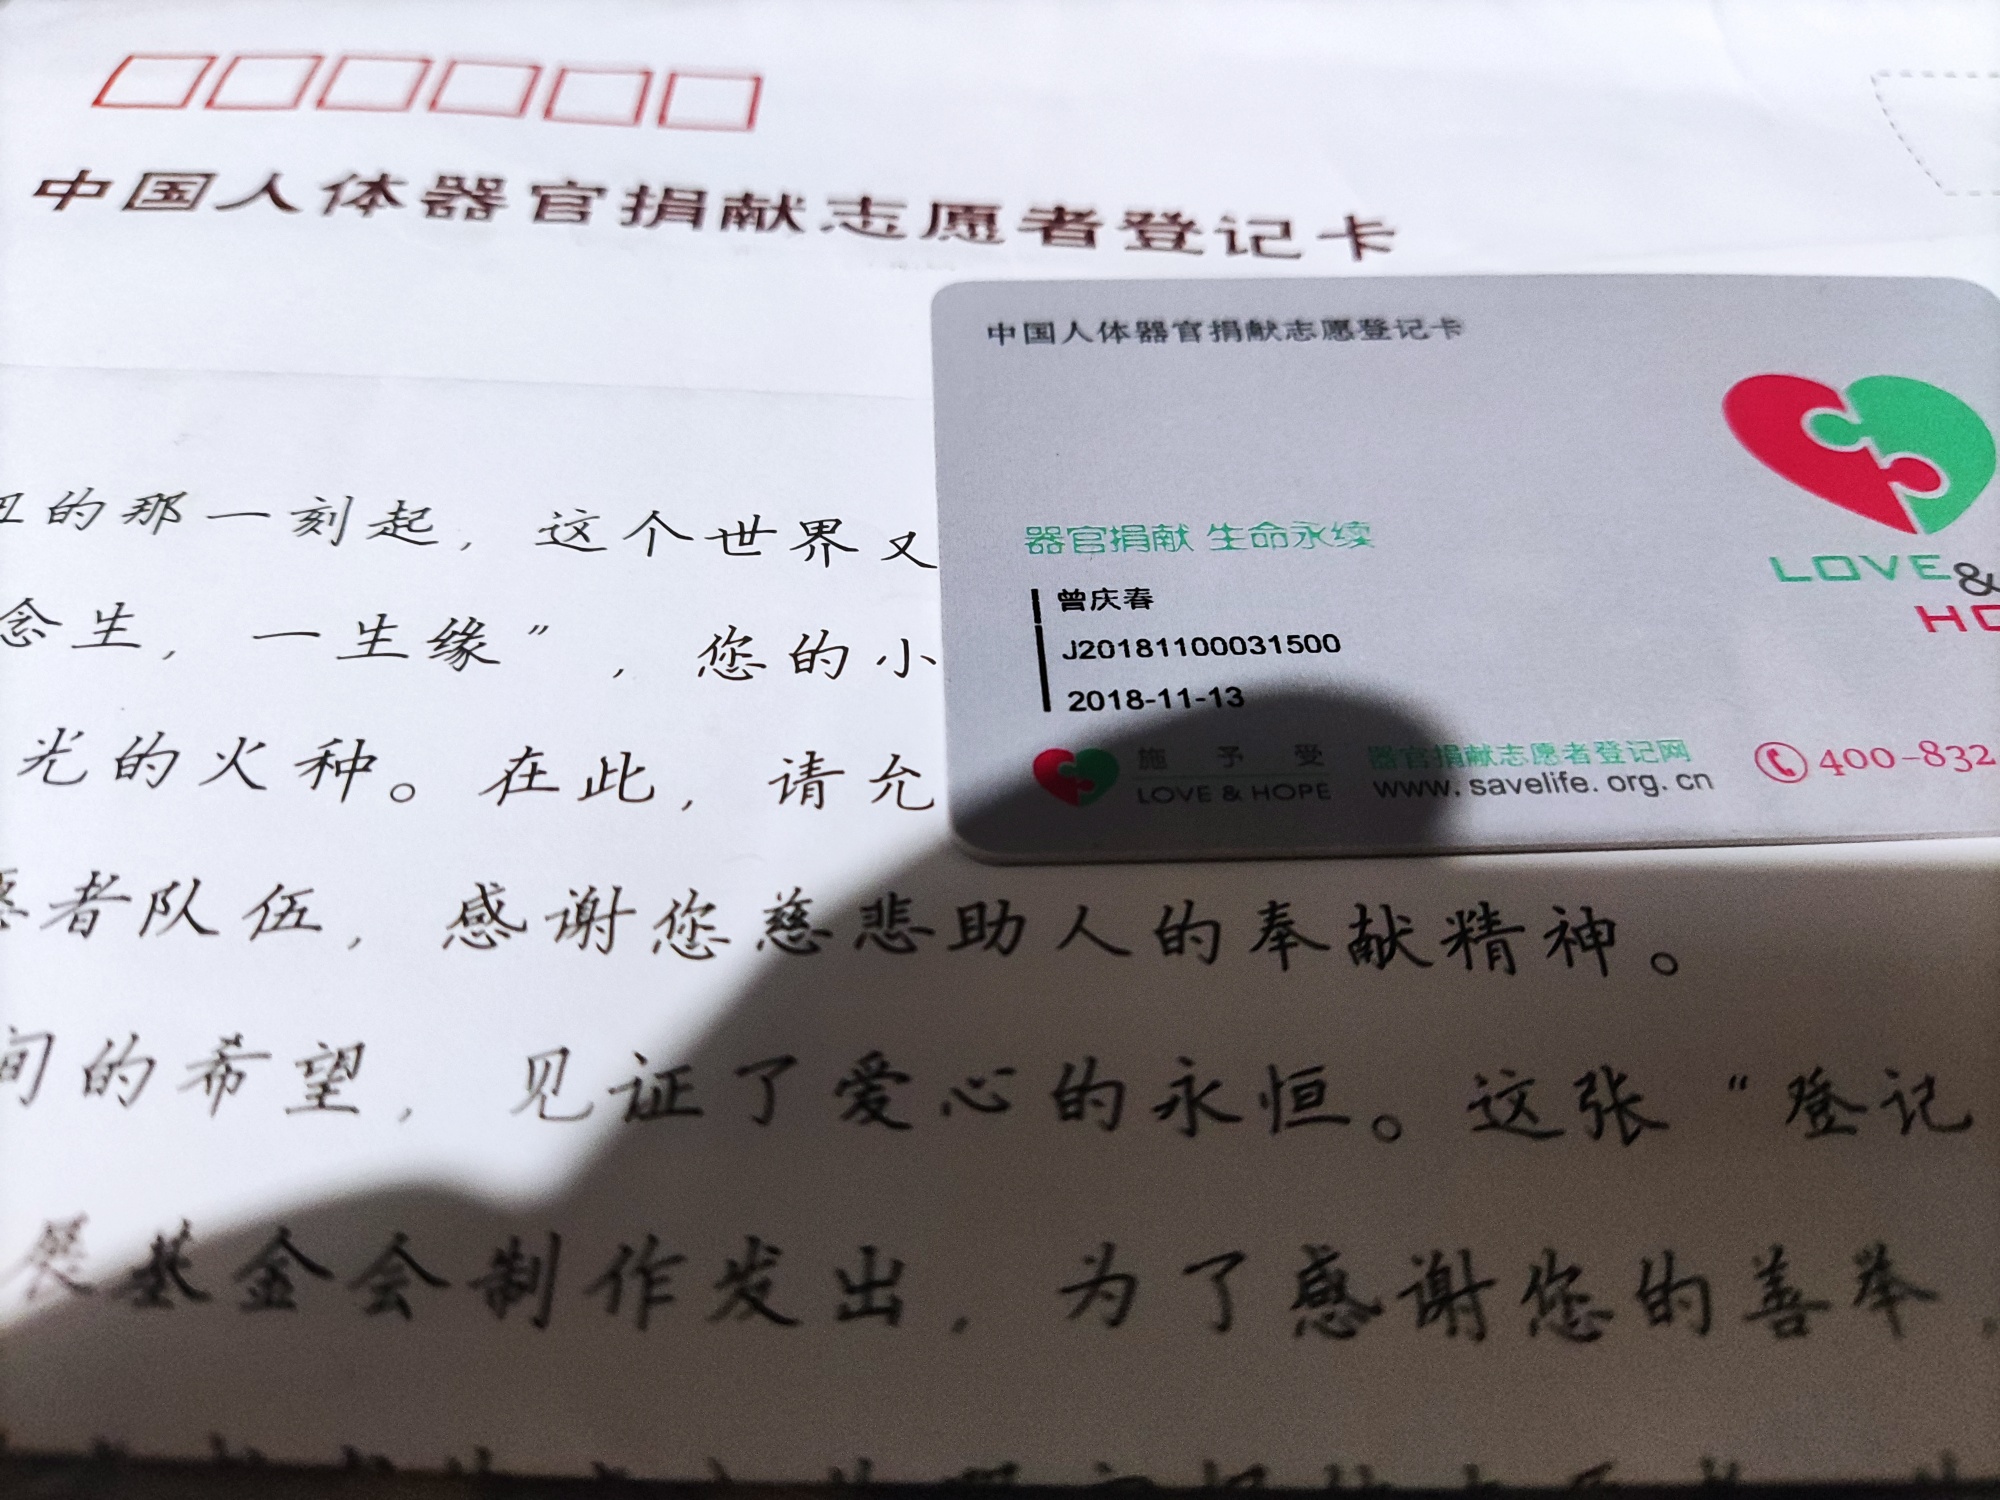 中国人体器官捐献志愿者登记卡
中国人体器官捐献志愿登记卡
LOVE&
HO
器官捐献 生命永续
曾庆春
J20181100031500
2018-11-13
施予受
LOVE & HOPE
器官捐献志愿者登记网
www.savelife.org.cn
400-832
的那一刻起,这个世界又
念生,一生缘”,您的小
光的火种。在此,请允
者队伍,感谢您慈悲助人的奉献精神。
间的希望,见证了爱心的永恒。这张“登记
展基金会制作发出,为了感谢您的善举,